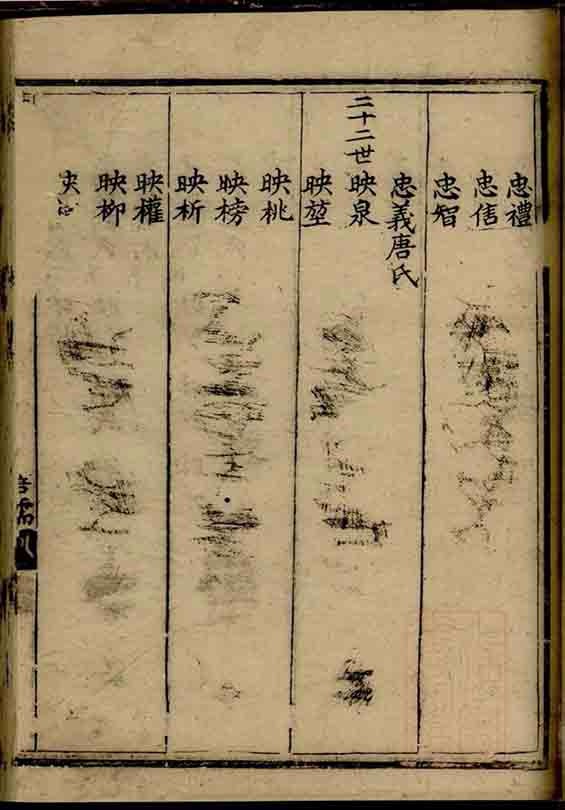 忠禮
忠信
忠智
忠義唐氏
二十二世
映泉
映堃
映桃
映榜
映析
映權
映柳